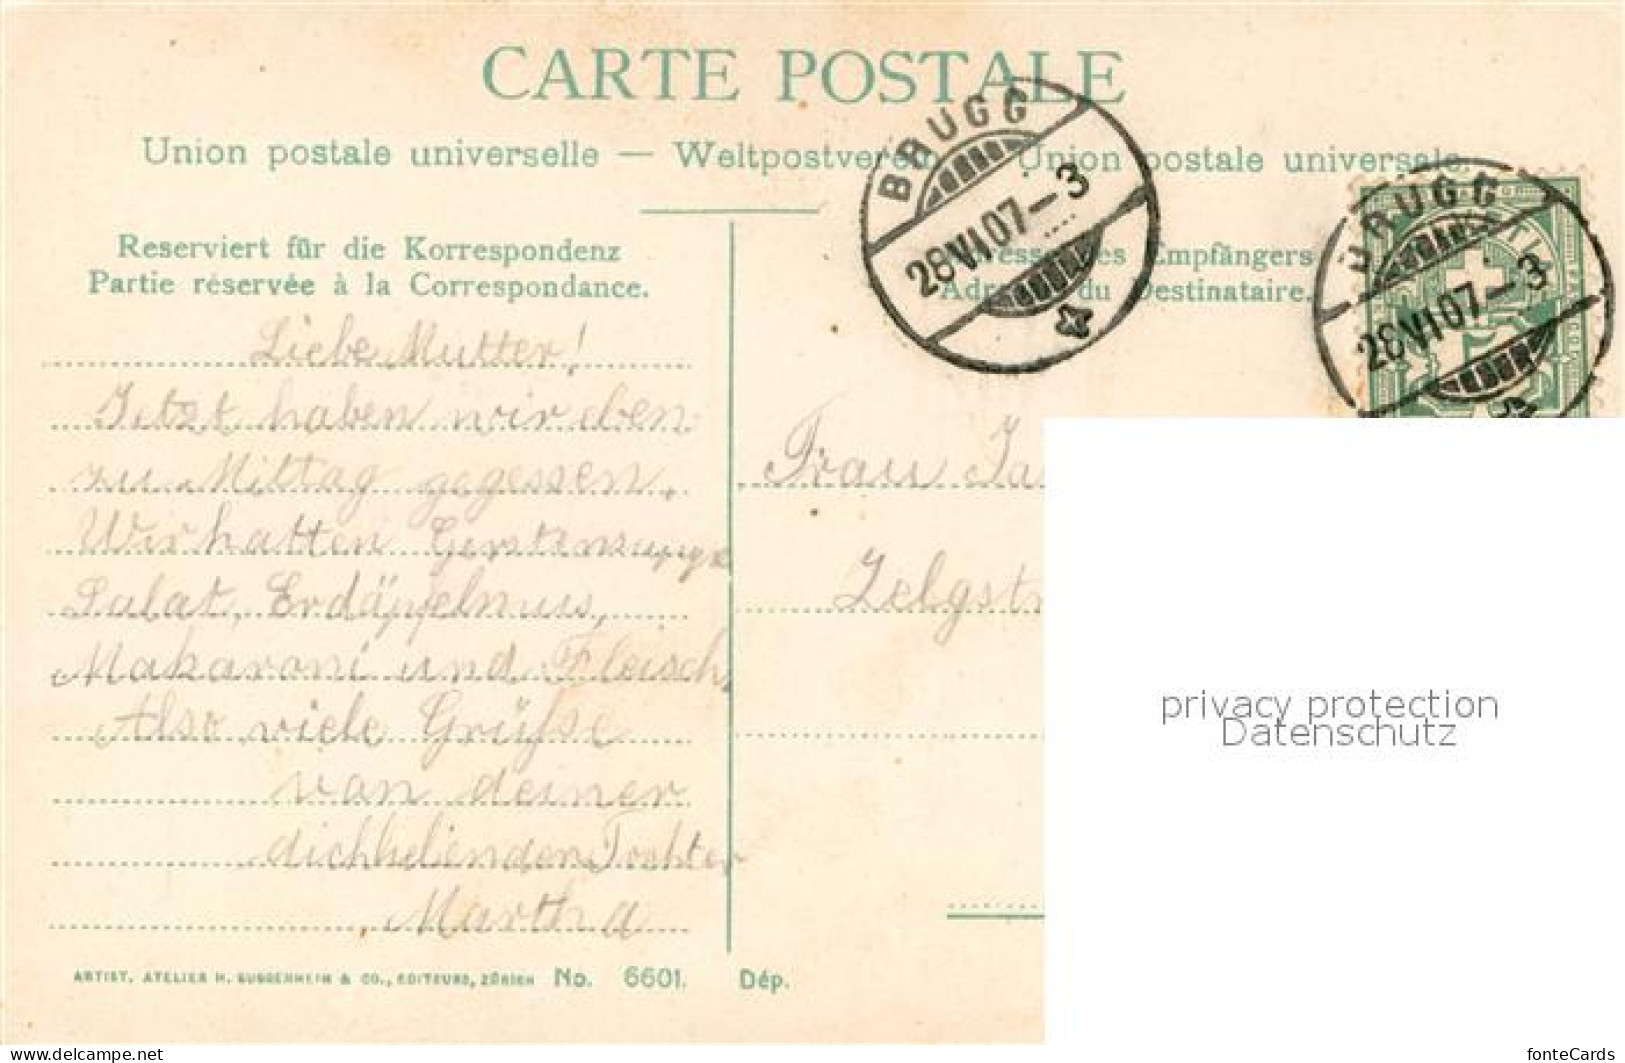 CARTE POSTALE
Union postale universelle — Weltpostverein — Union postale universale.
BRUGG
28 VI 07 – 3
BRUGG
28 VI 07 – 3
Reserviert für die Korrespondenz
Partie réservée à la Correspondance.
Adresse des Empfängers
Adresse du Destinataire.
Liebe Mutter!
Jetzt haben wir eben
zu Mittag gegessen.
Wir hatten Gerstensuppe
Salat, Erdäpfelmus,
Makaroni und Fleisch.
Also viele Grüsse
von deiner
dichliebenden Tochter
Martha
Frau
Zelgstr
ARTIST. ATELIER H. GUGGENHEIM & CO., EDITEURS, ZÜRICH No. 6601. Dép.
privacy protection
Datenschutz
www.delcampe.net
fonteCards